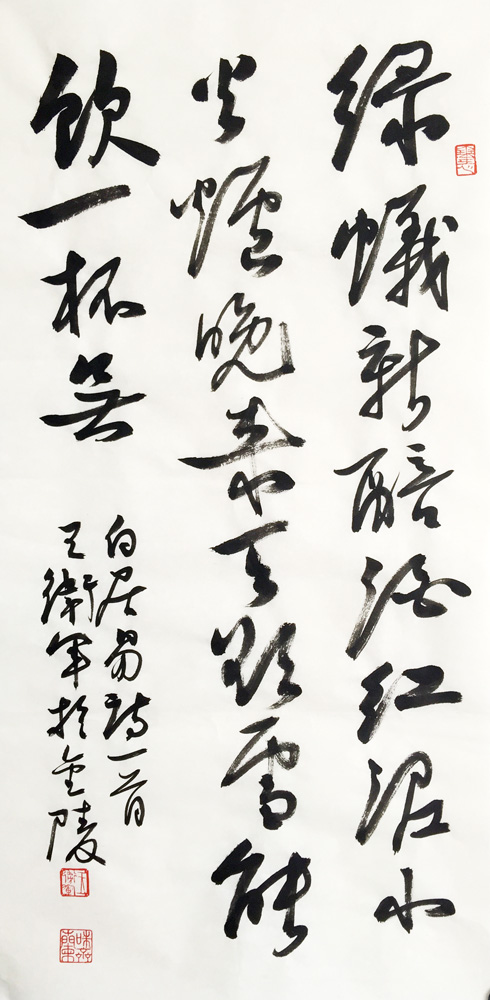 绿蟻新醅酒红泥小
火爐晚來天欲雪能
飲一杯無
白居易詩一首
王衛軍於金陵